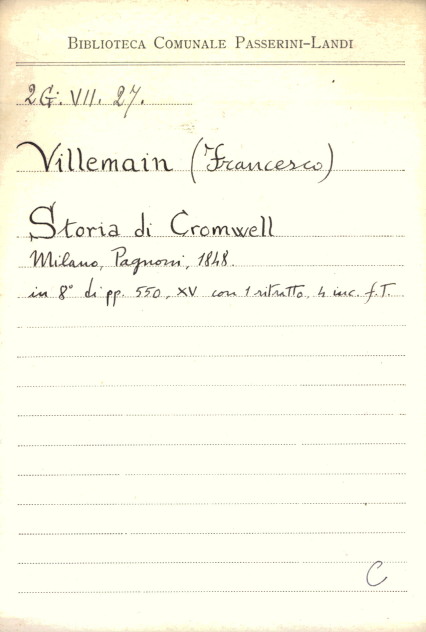 BIBLIOTECA COMUNALE PASSERINI-LANDI
2G. VII. 27.
Villemain (Francesco)
Storia di Cromwell
Milano, Pagnoni, 1848.
in 8° di pp. 550, XV con 1 ritratto, 4 inc. f.T.
C